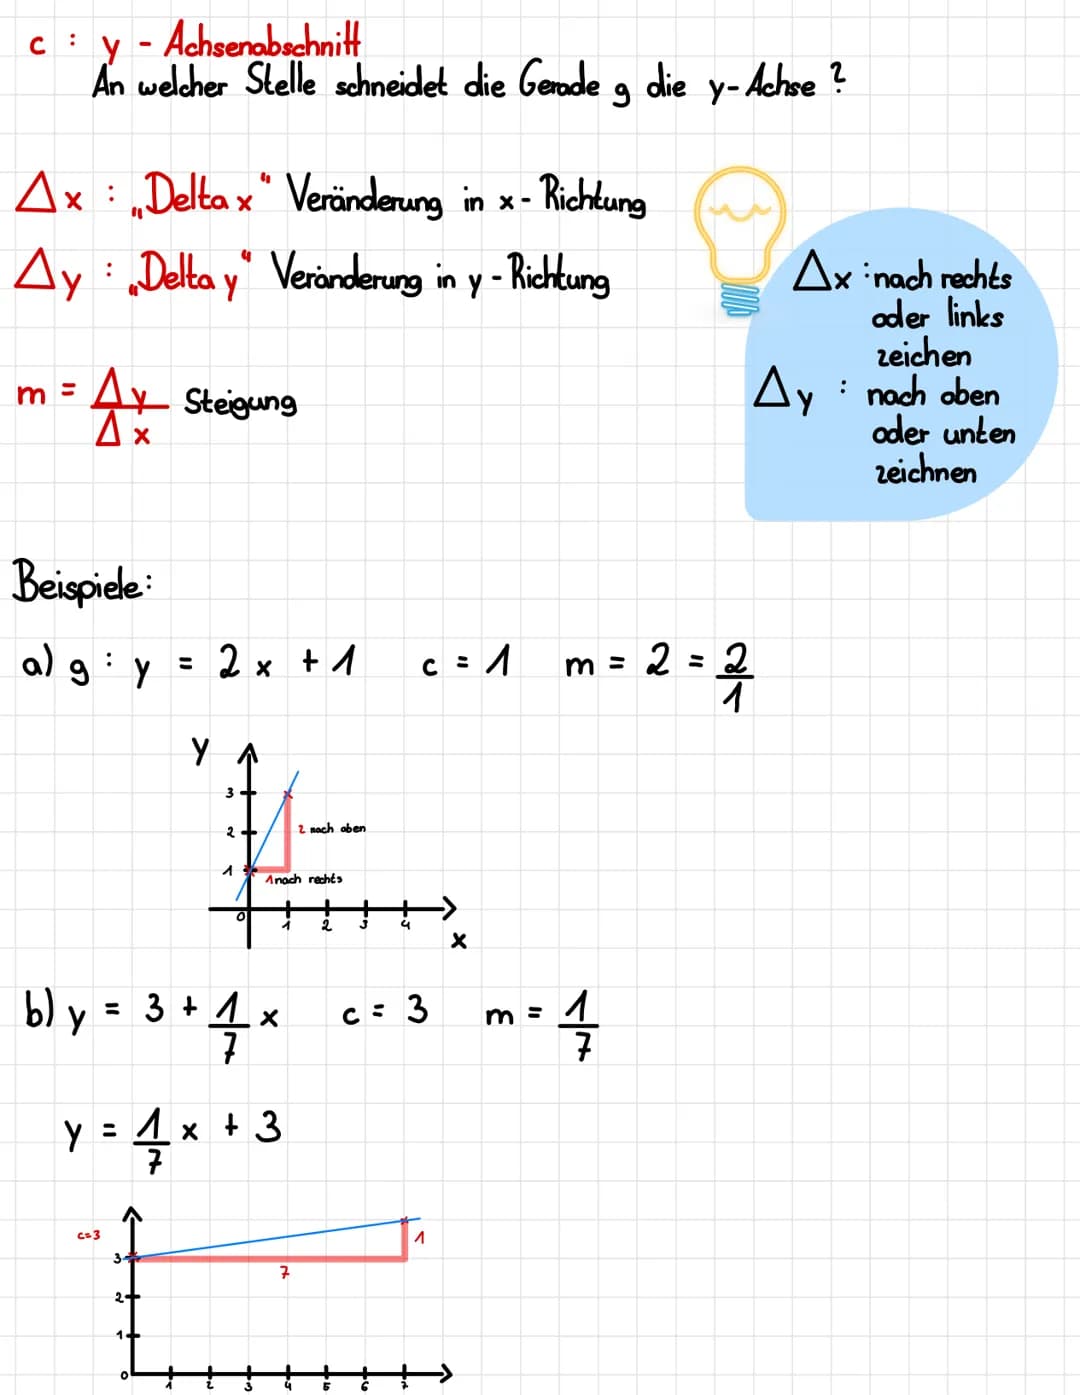 c : y - Achsenabschnitt
An welcher Stelle schneidet die Gerade g die y-Achse ?
Δx : „Delta x“ Veränderung in x-Richtung
Δy : „Delta y“ Veränderung in y-Richtung
m = Δy/Δx Steigung
Δx : nach rechts
oder links
zeichen
Δy : nach oben
oder unten
zeichnen
Beispiele:
a) g : y = 2x + 1 c = 1 m = 2 = 2/1
y
3
2
2 nach oben
1
1 nach rechts
0 1 2 3 4
x
b) y = 3 + 1/7 x c = 3 m = 1/7
y = 1/7 x + 3
c=3
1
3
7
2
1
0 1 2 3 4 5 6 7